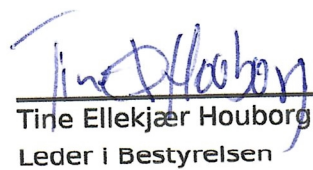 Tine Houborg
Tine Ellekjær Houborg
Leder i Bestyrelsen